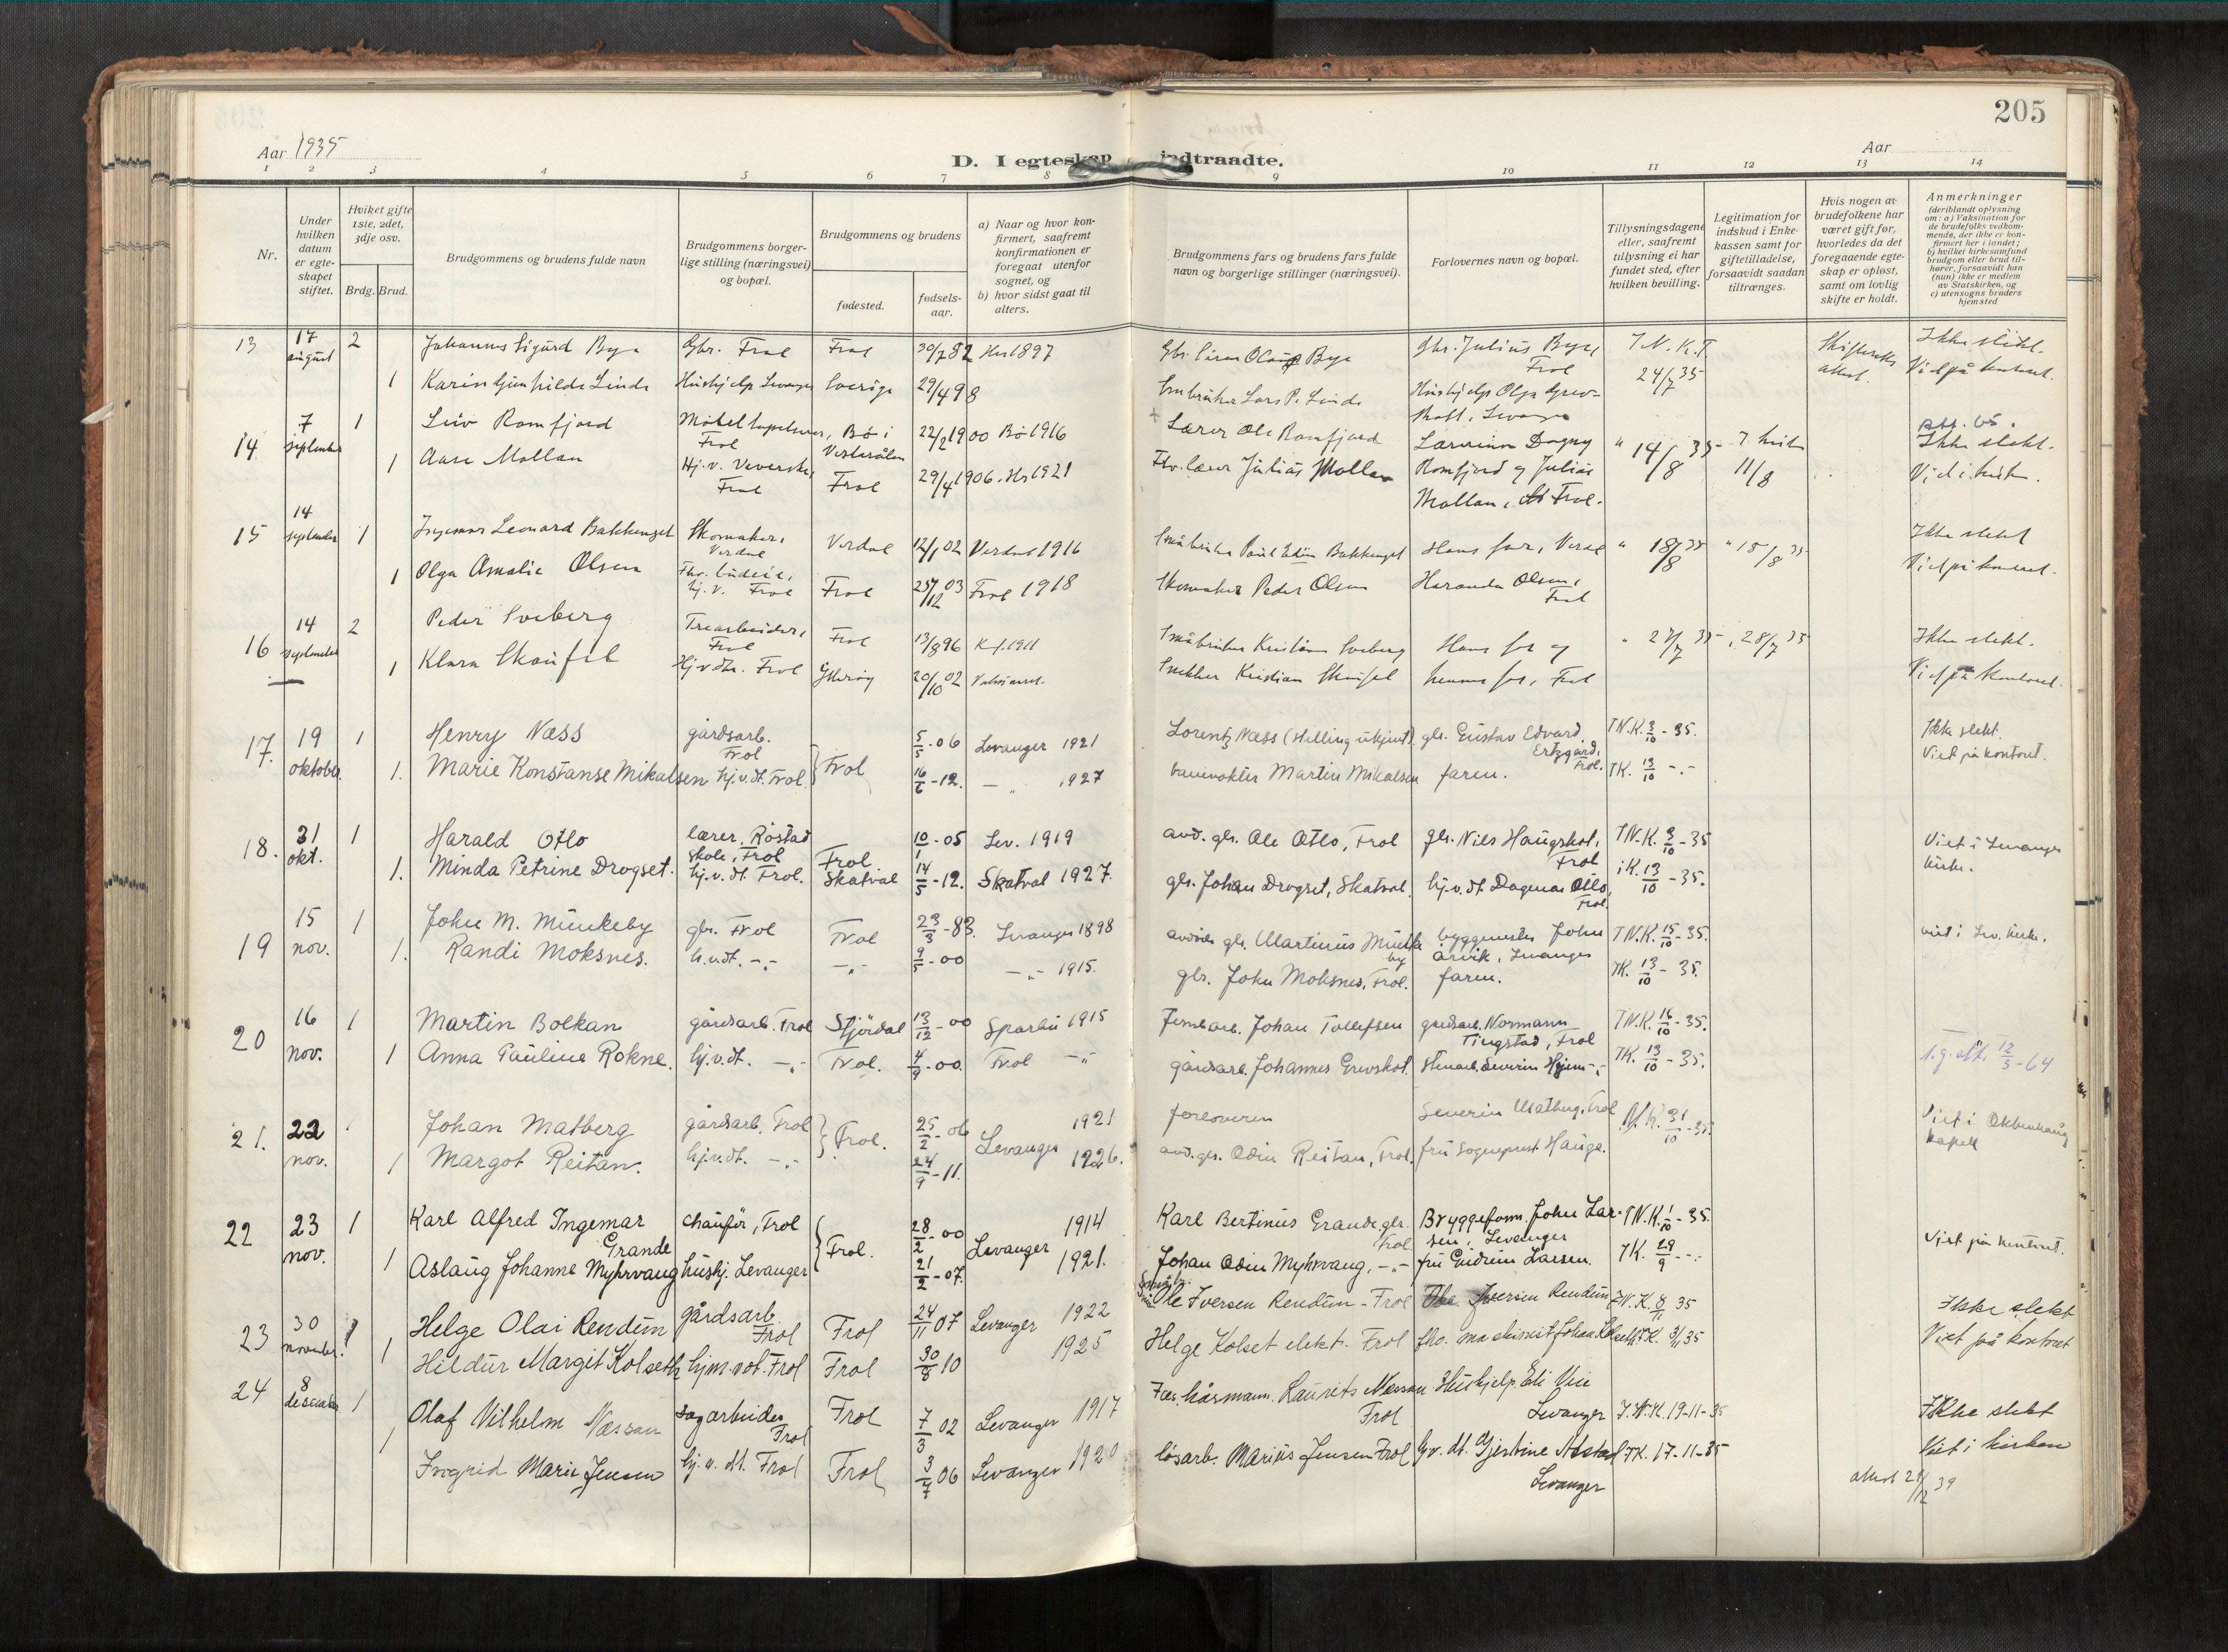 205
Aar 1935
D. I egteskap indtraadte.
Aar
1 2 3 4 5 6 7 8 9 10 11 12 13 14
Nr.
Under hvilken datum er egteskapet stiftet.
Hvilket gifte 1ste, 2det, 3dje osv.
Brdg. Brud.
Brudgommens og brudens fulde navn
Brudgommens borgerlige stilling (næringsvei) og bopæl.
Brudgommens og brudens
fødested.
fødselsaar.
a) Naar og hvor konfirmert, saafremt konfirmationen er foregaat utenfor sognet, og
b) hvor sidst gaat til alters.
Brudgommens fars og brudens fars fulde navn og borgerlige stillinger (næringsvei).
Forlovernes navn og bopæl.
Tillysningsdagene eller, saafremt tillysning ei har fundet sted, efter hvilken bevilling.
Legitimation for indskud i Enkekassen samt for giftetilladelse, forsaavidt saadan tiltrænges.
Hvis nogen av brudefolkene har været gift før, hvorledes da det foregaaende egteskap er opløst, samt om lovlig skifte er holdt.
Anmerkninger
(deriblandt oplysning om: a) Vaksination for de brudefolks vedkommende, der ikke er konfirmert her i landet; b) hvilket kirkesamfund brudgom eller brud tilhører, forsaavidt han (hun) ikke er medlem av Statskirken, og c) utensogns bruders hjemsted
13 17 august 2 Johannes Sigurd Bye Gbr. Frol Frol 30/7 82 1897 Bye Gbr. Julius Bye Frol T.N.K.T 24/7 35 Ikke slekt.
1 Linde Hushjelp Levanger Sverige 29/4 98 Lars P. Linde Hushjelp Olga Levanger
14 7 september 1 Leiv Romfjord Frol Bø i Vesterålen 22/2 1900 Bø 1916 Lærer Ole Romfjord Lærerinne Dagny Romfjord og Julius Mollan, Frol. 14/8 35 11/8 Ikke slekt.
1 Aase Mollan Hj. v. Frol Frol 29/4 1906. 1921 lærer Julius Mollan
15 14 september 1 Ingemar Leonard Bakkenget Skomaker, Verdal Verdal 12/1 02 Verdal 1916 Småbruker Bakkenget Hans far, Verdal 18/8 35 15/8 35 Ikke slekt
1 Olga Amalie Olsen hj. v. Frol Frol 25/12 03 Frol 1918 Skomaker Peder Olsen Olsen, Frol
16 14 september 2 Peder Sveberg Trearbeider, Frol Frol 13/8 96 1911 Småbruker Kristian Sveberg Hans far og 27/7 35 28/7 35 Ikke slekt.
1 Klara Skaufel Hj. v. dtr. Frol Ytterøy 20/10 02 Snekker Kristian Skaufel hennes far, Frol Viet på kontoret.
17. 19 oktober 1 Henry Næss gårdsarb. Frol Frol 5/5 - 06 Levanger 1921 Lorentz Næss (stilling ukjent) gbr. Gustav Edvard Ertzgård, Frol. TN.K. 3/10 - 35. Ikke slekt.
1. Marie Konstanse Mikalsen hj.v.dt. Frol 16/6 - 12. 1927 banevokter Martin Mikalsen faren. TK. 13/10 -.- Viet på kontoret.
18. 31 okt. 1 Harald Otlo lærer, Røstad skole, Frol Frol 10/1 - 05 Lev. 1919 avd. gbr. Ole Otlo, Frol gbr. Nils Haugskot, Frol TN.K. 3/10 - 35 Viet i Levanger kirke.
1. Minda Petrine Drogset. hj.v.dt. Frol. Skatval 14/5 - 12. Skatval 1927. gbr. Johan Drogset, Skatval. hj.v.dt Dagmar Otlo, Frol. 13/10 - 35.
19 15 nov. 1 John M. Munkeby gbr. Frol Frol 23/3 - 83. Levanger 1898 gbr. Martinus Munkeby byggmester John Arvik, Levanger TN.K. 15/10 - 35. viet i Lev. kirke.
1. Randi Moksnes. h.v.dt. -.- -.- 9/5 - 00 -.- 1915. gbr. John Moksnes, Frol. faren. TK. 13/10 - 35.
20 16 nov. 1 Martin Bolkan gårdsarb. Frol Stjørdal 13/12 - 00 Sparbu 1915 Johan Tollefsen gårdsarb. Normann Tingstad, Frol TN.K. 16/10 - 35.
1 Anna Pauline Rokne. hj.v.dt. -.- Frol. 4/9 - 00. Frol -.- gårdsarb. Johannes Grevskot. Stenarb. Severin Hjem -.- TK. 13/10 - 35. 12/5 - 64
21. 22 nov. 1 Johan Matberg gårdsarb. Frol Frol. 25/2 - 06 Levanger 1921 forloveren Severin Matberg, Frol 31/10 - 35. Viet i Okkenhaug kapell
1 Margot Reitan. hj.v.dt. -.- 24/9 - 11. 1926. avd. gbr. Odin Reitan, Frol. fru Sogneprest Hauge.
22 23 nov. 1 Karl Alfred Ingemar Grande chauffør, Frol Frol. 28/2 - 00 Levanger 1914 Karl Bertinus Grande gbr. Frol Bryggeform. John Larsen, Levanger TN.K. 1/10 - 35. Viet på kontoret.
1 Aslaug Johanne Myhrvang hushj. Levanger 21/2 - 07. 1921. Johan Odin Myhrvang, -.- fru Gudrun Larsen. TK. 29/9 -.-
23 30 november 1 Helge Olai Rendum gårdsarb Frol Frol 24/11 07 Levanger 1922 Ole Iversen Rendum - Frol Iversen Rendum 8/11 35 Ikke slekt
1 Hildur Margit Kolseth hjm. Frol Frol 30/8 10 1925 Helge Kolset elekt. Frol maskinist Johan Kolseth TK. 3/11 35 Viet på kontoret
24 8 desember 1 Olaf Vilhelm Næssan sagarbeider Frol Frol 7/3 02 Levanger 1917 Laurits Næssan Frol Hushjelp. Eli Vie Levanger 19-11-35 Ikke slekt
1 Ingrid Marie Jensen hj. v. dt. Frol Frol 3/7 06 Levanger 1920 løsarb. Marius Jensen Frol Levanger TK. 17-11-35 Viet i kirken
21/12 39